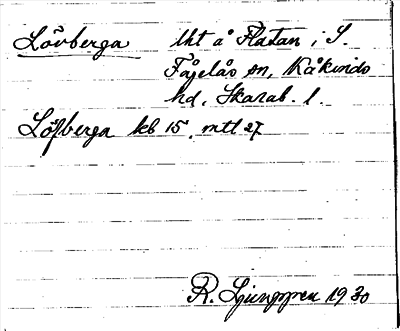 Lövberga lht å Flatan i S.
Fågelås sn, Kåkinds
hd, Skarab. l.
Löfberga kb 15, mtl 27
R. Ljunggren 1930